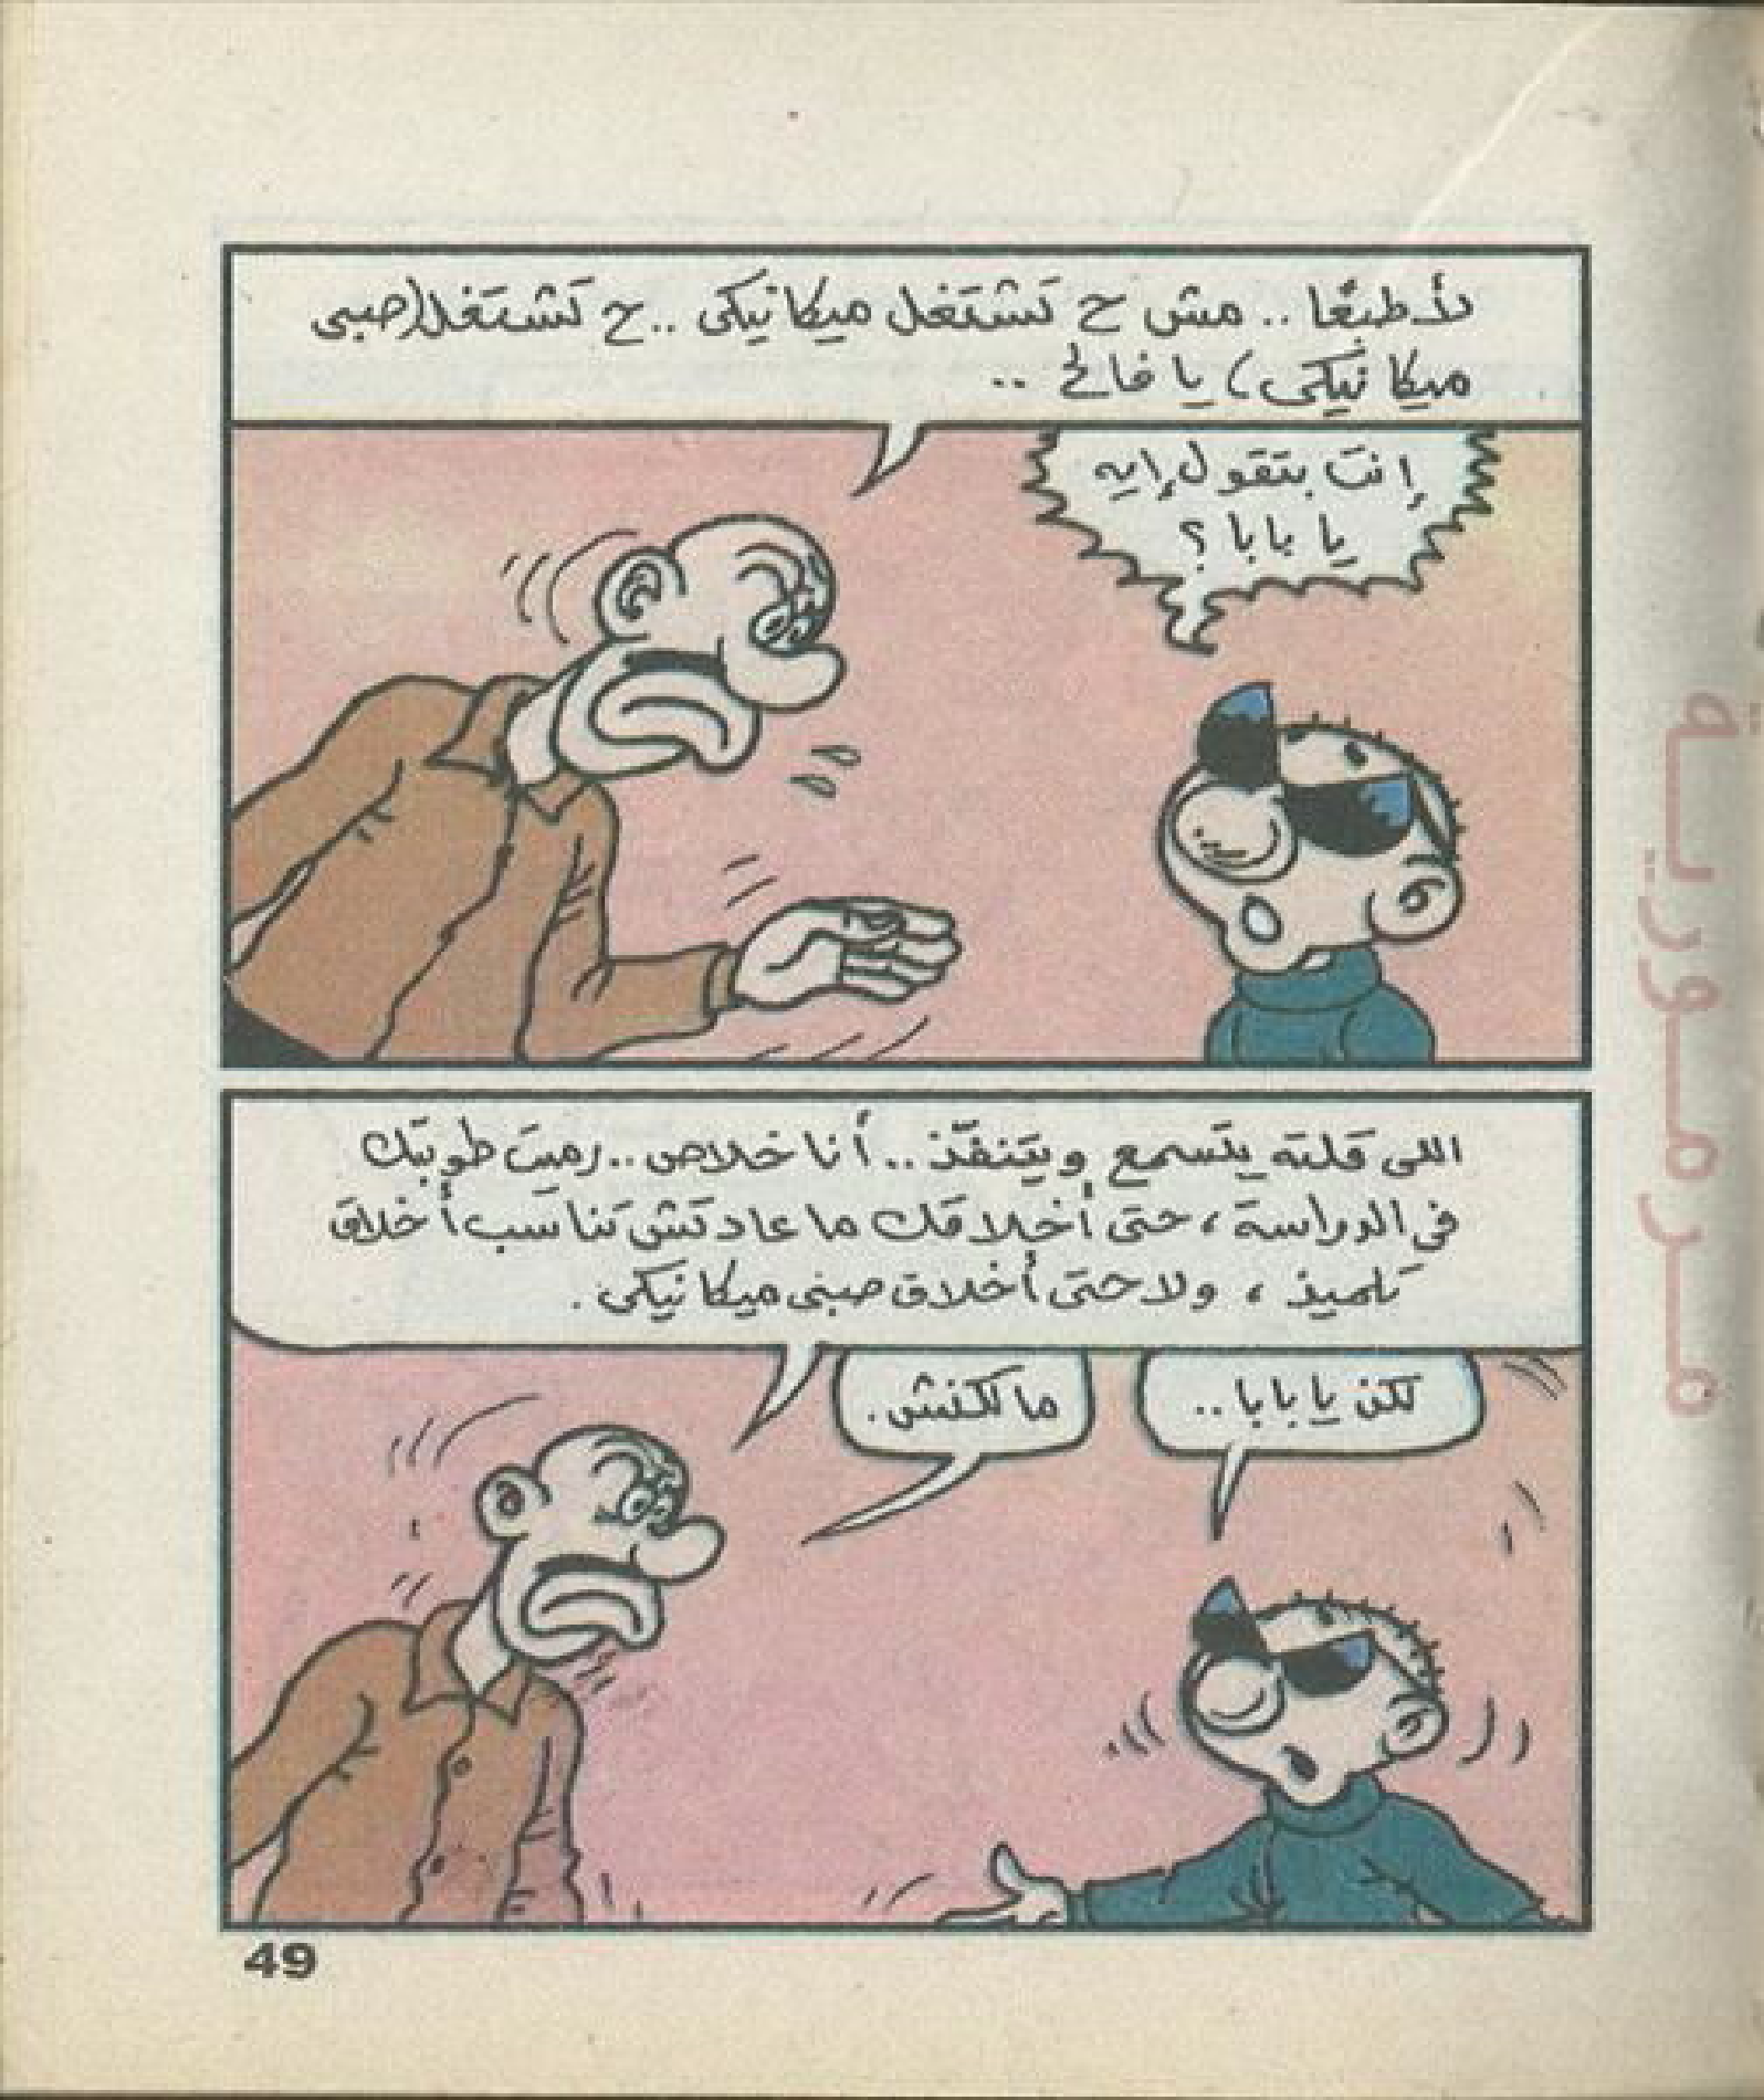 لأ طبعًا .. مش ح تشتغل ميكانيكى .. ح تشتغل (صبى
ميكانيكى) يا فالح ..
إنت بتقول إيه
يا بابا ؟
اللى قلته يتسمع ويتنفّذ .. أنا خلاص .. رميت طوبتك
فى الدراسة ، حتى أخلاقك ما عادتش تناسب أخلاق
تلميذ ، ولا حتى أخلاق صبى ميكانيكى .
لكن يا بابا ..
ما لكنش .
49
مرمورية